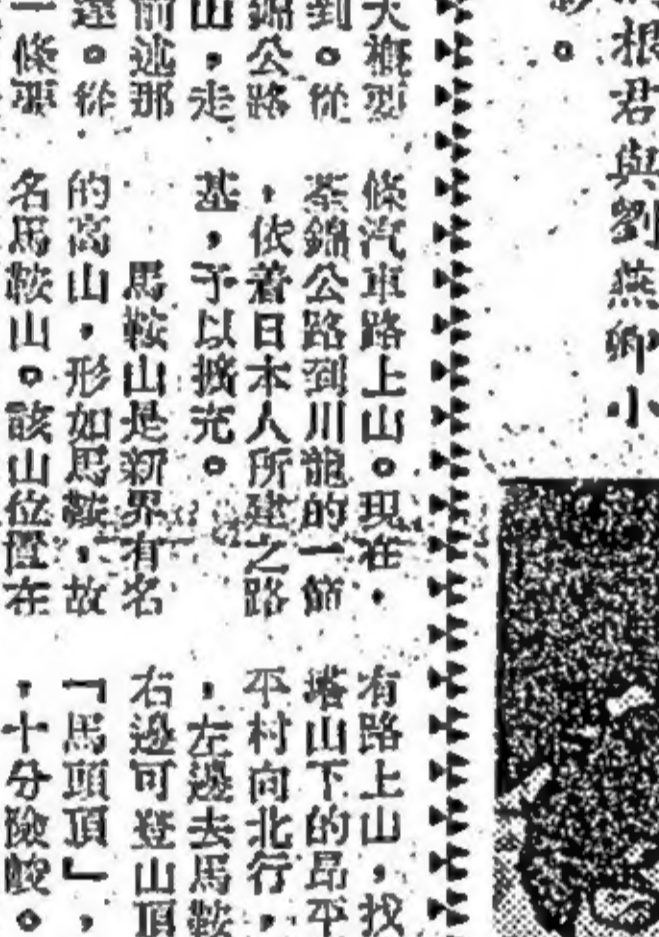 根君與劉燕卿小
。
大概要
到。從
錦公路
山，走
前述那
達。從
一條要
條汽車路上山。現在，
荃錦公路到川龍的一節
，依着日本人所建之路
基，予以擴充。
馬鞍山是新界有名
的高山，形如馬鞍，故
名馬鞍山。該山位置在
有路上山，找
塔山下的昂平
平村向北行，
，左邊去馬鞍
右邊可登山頂
「馬頭頂」，
，十分險峻。